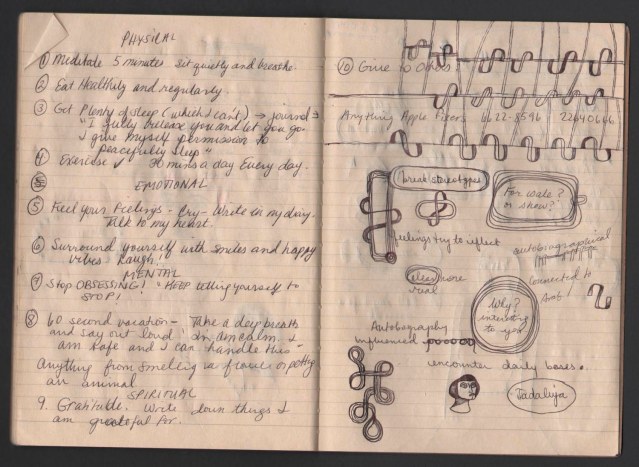 PHYSICAL
① Meditate 5 minutes sit quietly and breathe.
② Eat Healthily and regularly.
③ Get Plenty of sleep (which I can't) → journal →
"I fully release you and let you go.
I give myself permission to
peacefully sleep"
4 Exercise ✓ 30 mins a day Every day.
EMOTIONAL
⑤ Feel your feelings - Cry - Write in my diary.
Talk to my heart.
⑥ Surround yourself with smiles and happy
vibes. Laugh!
MENTAL
⑦ Stop OBSESSING! KEEP telling yourself to
STOP!
⑧ 60 second vacation - Take a deep breath
and say out loud I am calm. I
am safe and I can handle this -
Anything from smelling a flower or petting
an animal
SPIRITUAL
9. Gratitude. Write down things I
am grateful for.
⑩ Give to Others.
Anything Apple Fixers 6122-8596
break stereotypes
For wate?
or show?
feelings try to reflect
autobiographical
clear more
real
connected to
Arab
Why?
interesting
to you
Autobiography
influenced
encounter daily bases.
Jadaliya